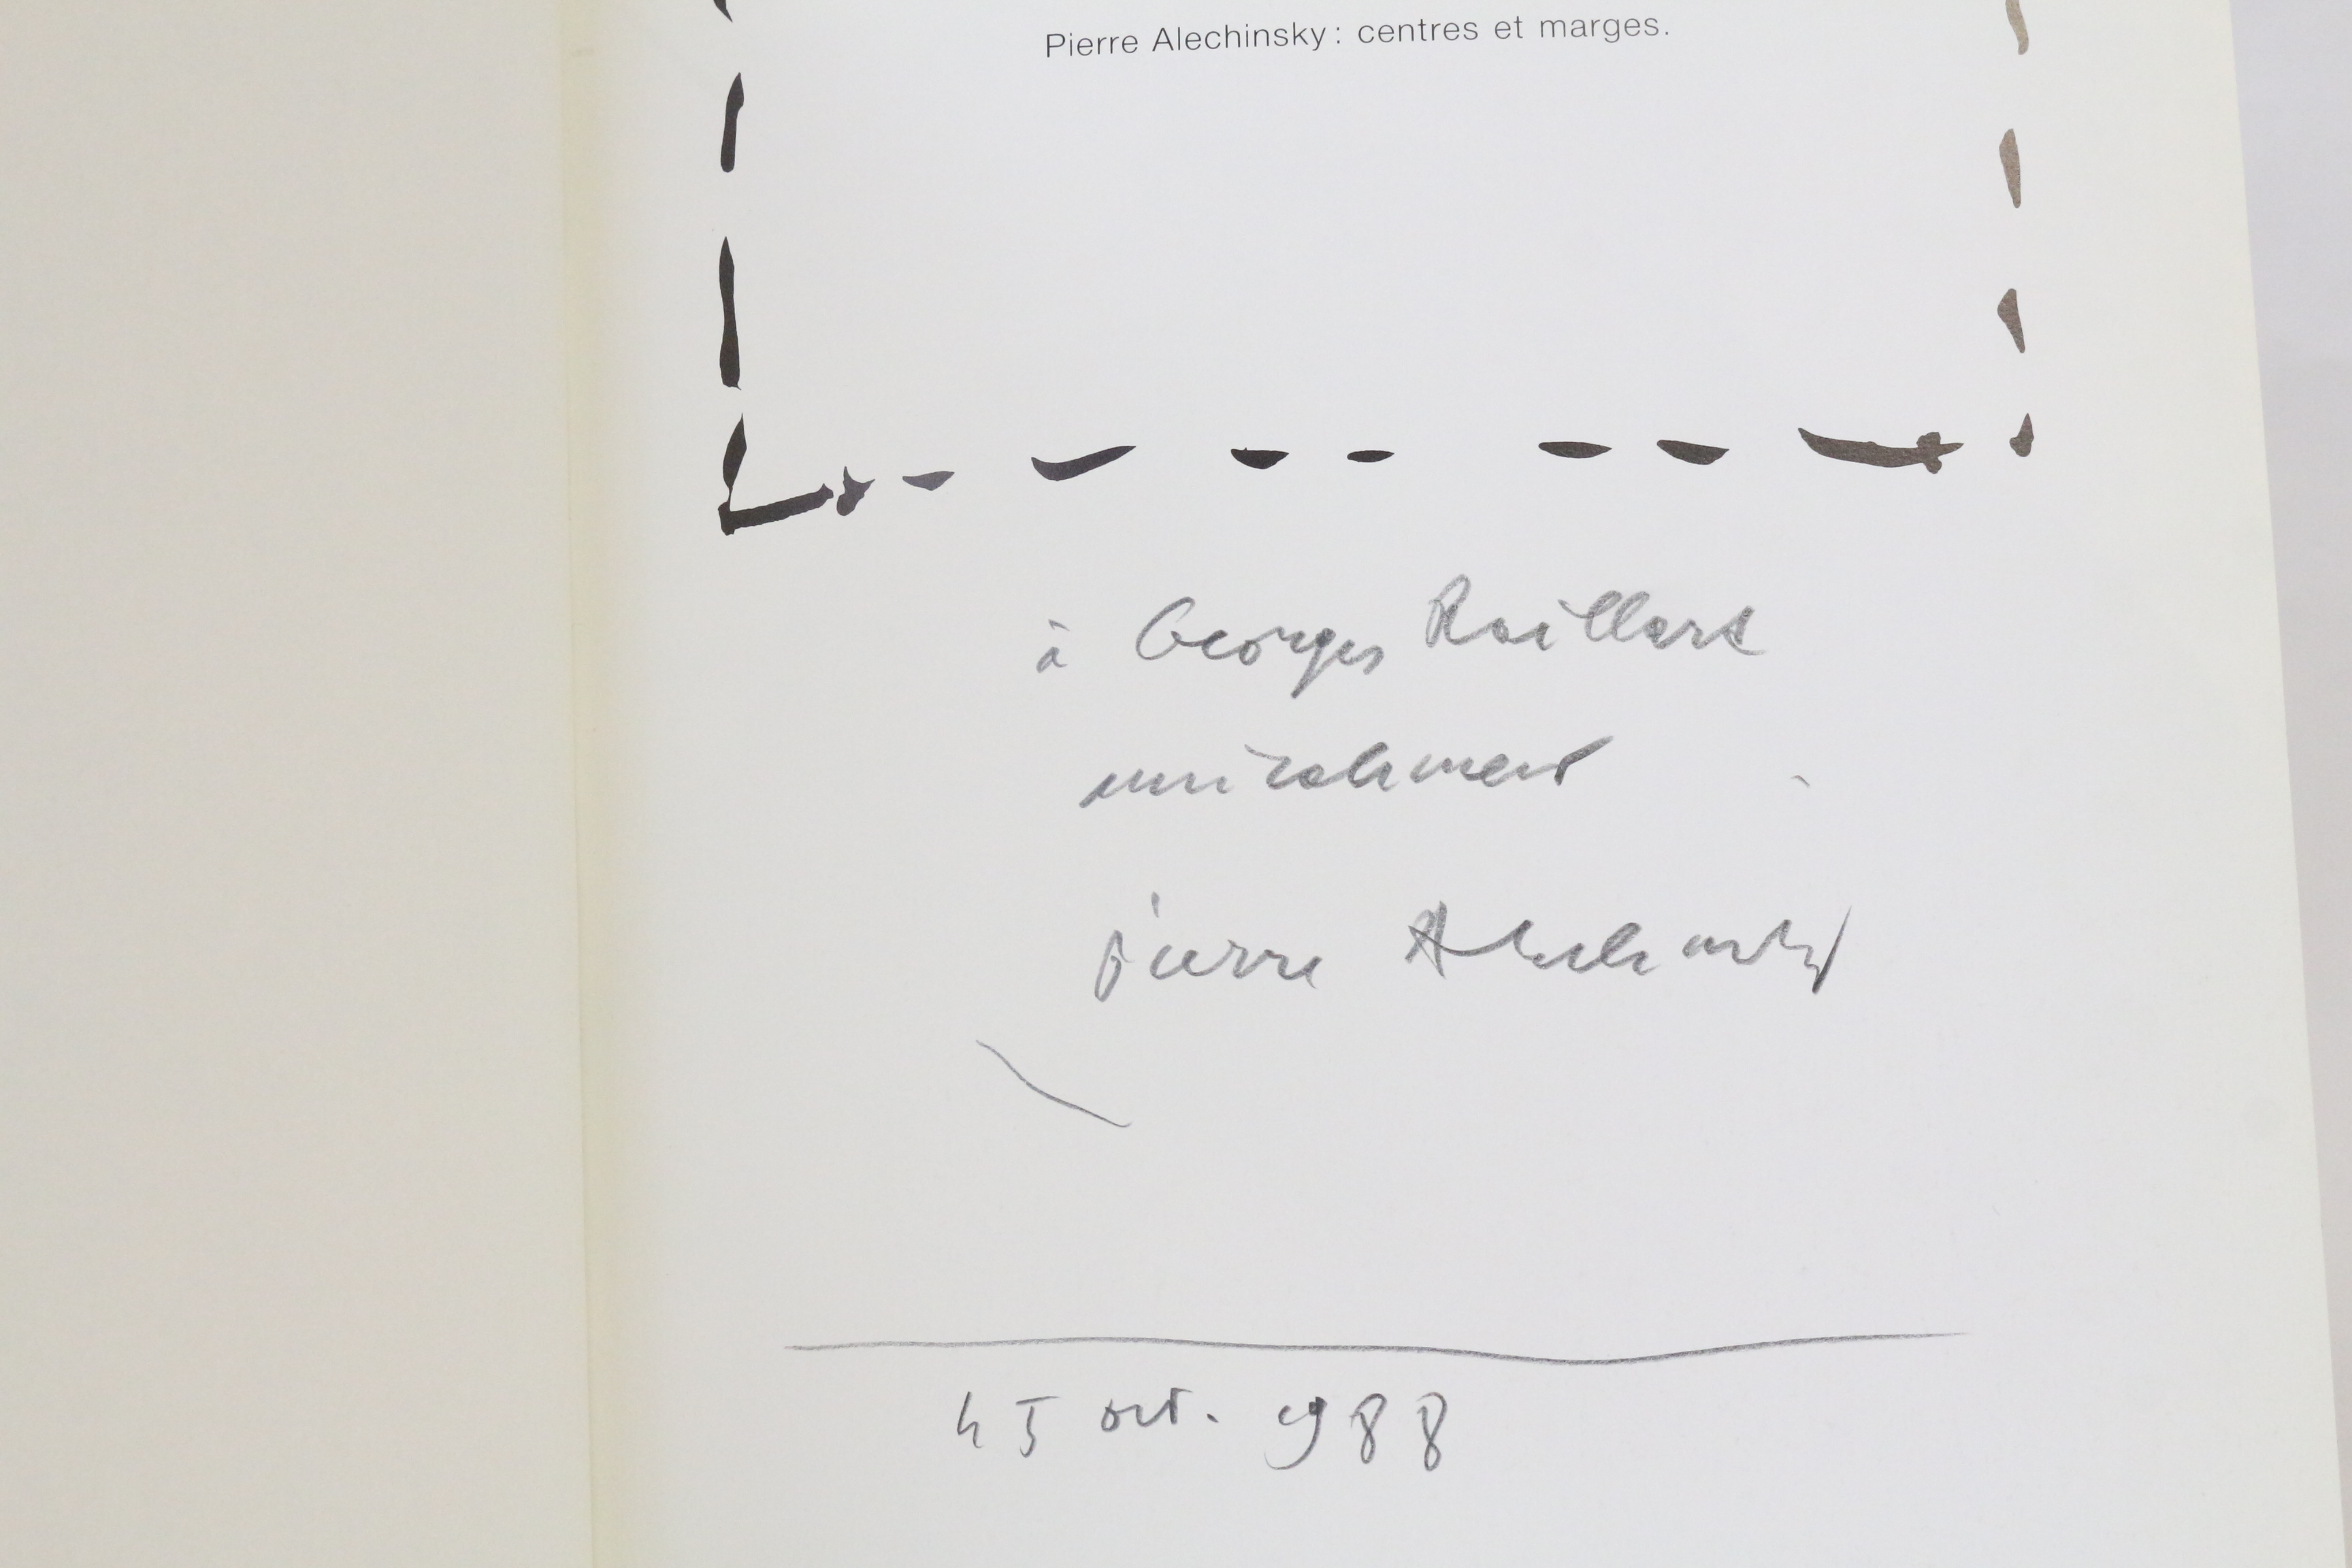 Pierre Alechinsky : centres et marges.
à Georges Raillard
amicalement
Pierre Alechinsky
oct. 1988